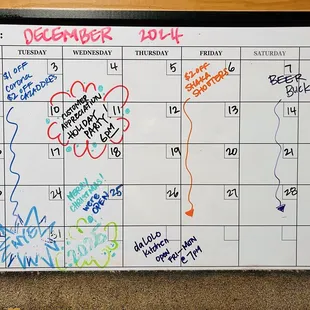 DECEMBER 2024
TUESDAY WEDNESDAY THURSDAY FRIDAY SATURDAY
3 4 5 6 7
$1 OFF
Corona
$2 OFF
CAZADORES
$2 OFF
SHAKA
SHOOTERS
BEER
Buck
10 11 12 13 14
CUSTOMER
APPRECIATION
HOLIDAY
PARTY!
6PM
17 18 19 20 21
24 25 26 27 28
MERRY
CHRISTMAS!
WE'RE
OPEN!
31
NYE!
2025
daLOLO
Kitchen
open
FRI-MON
@ 7PM